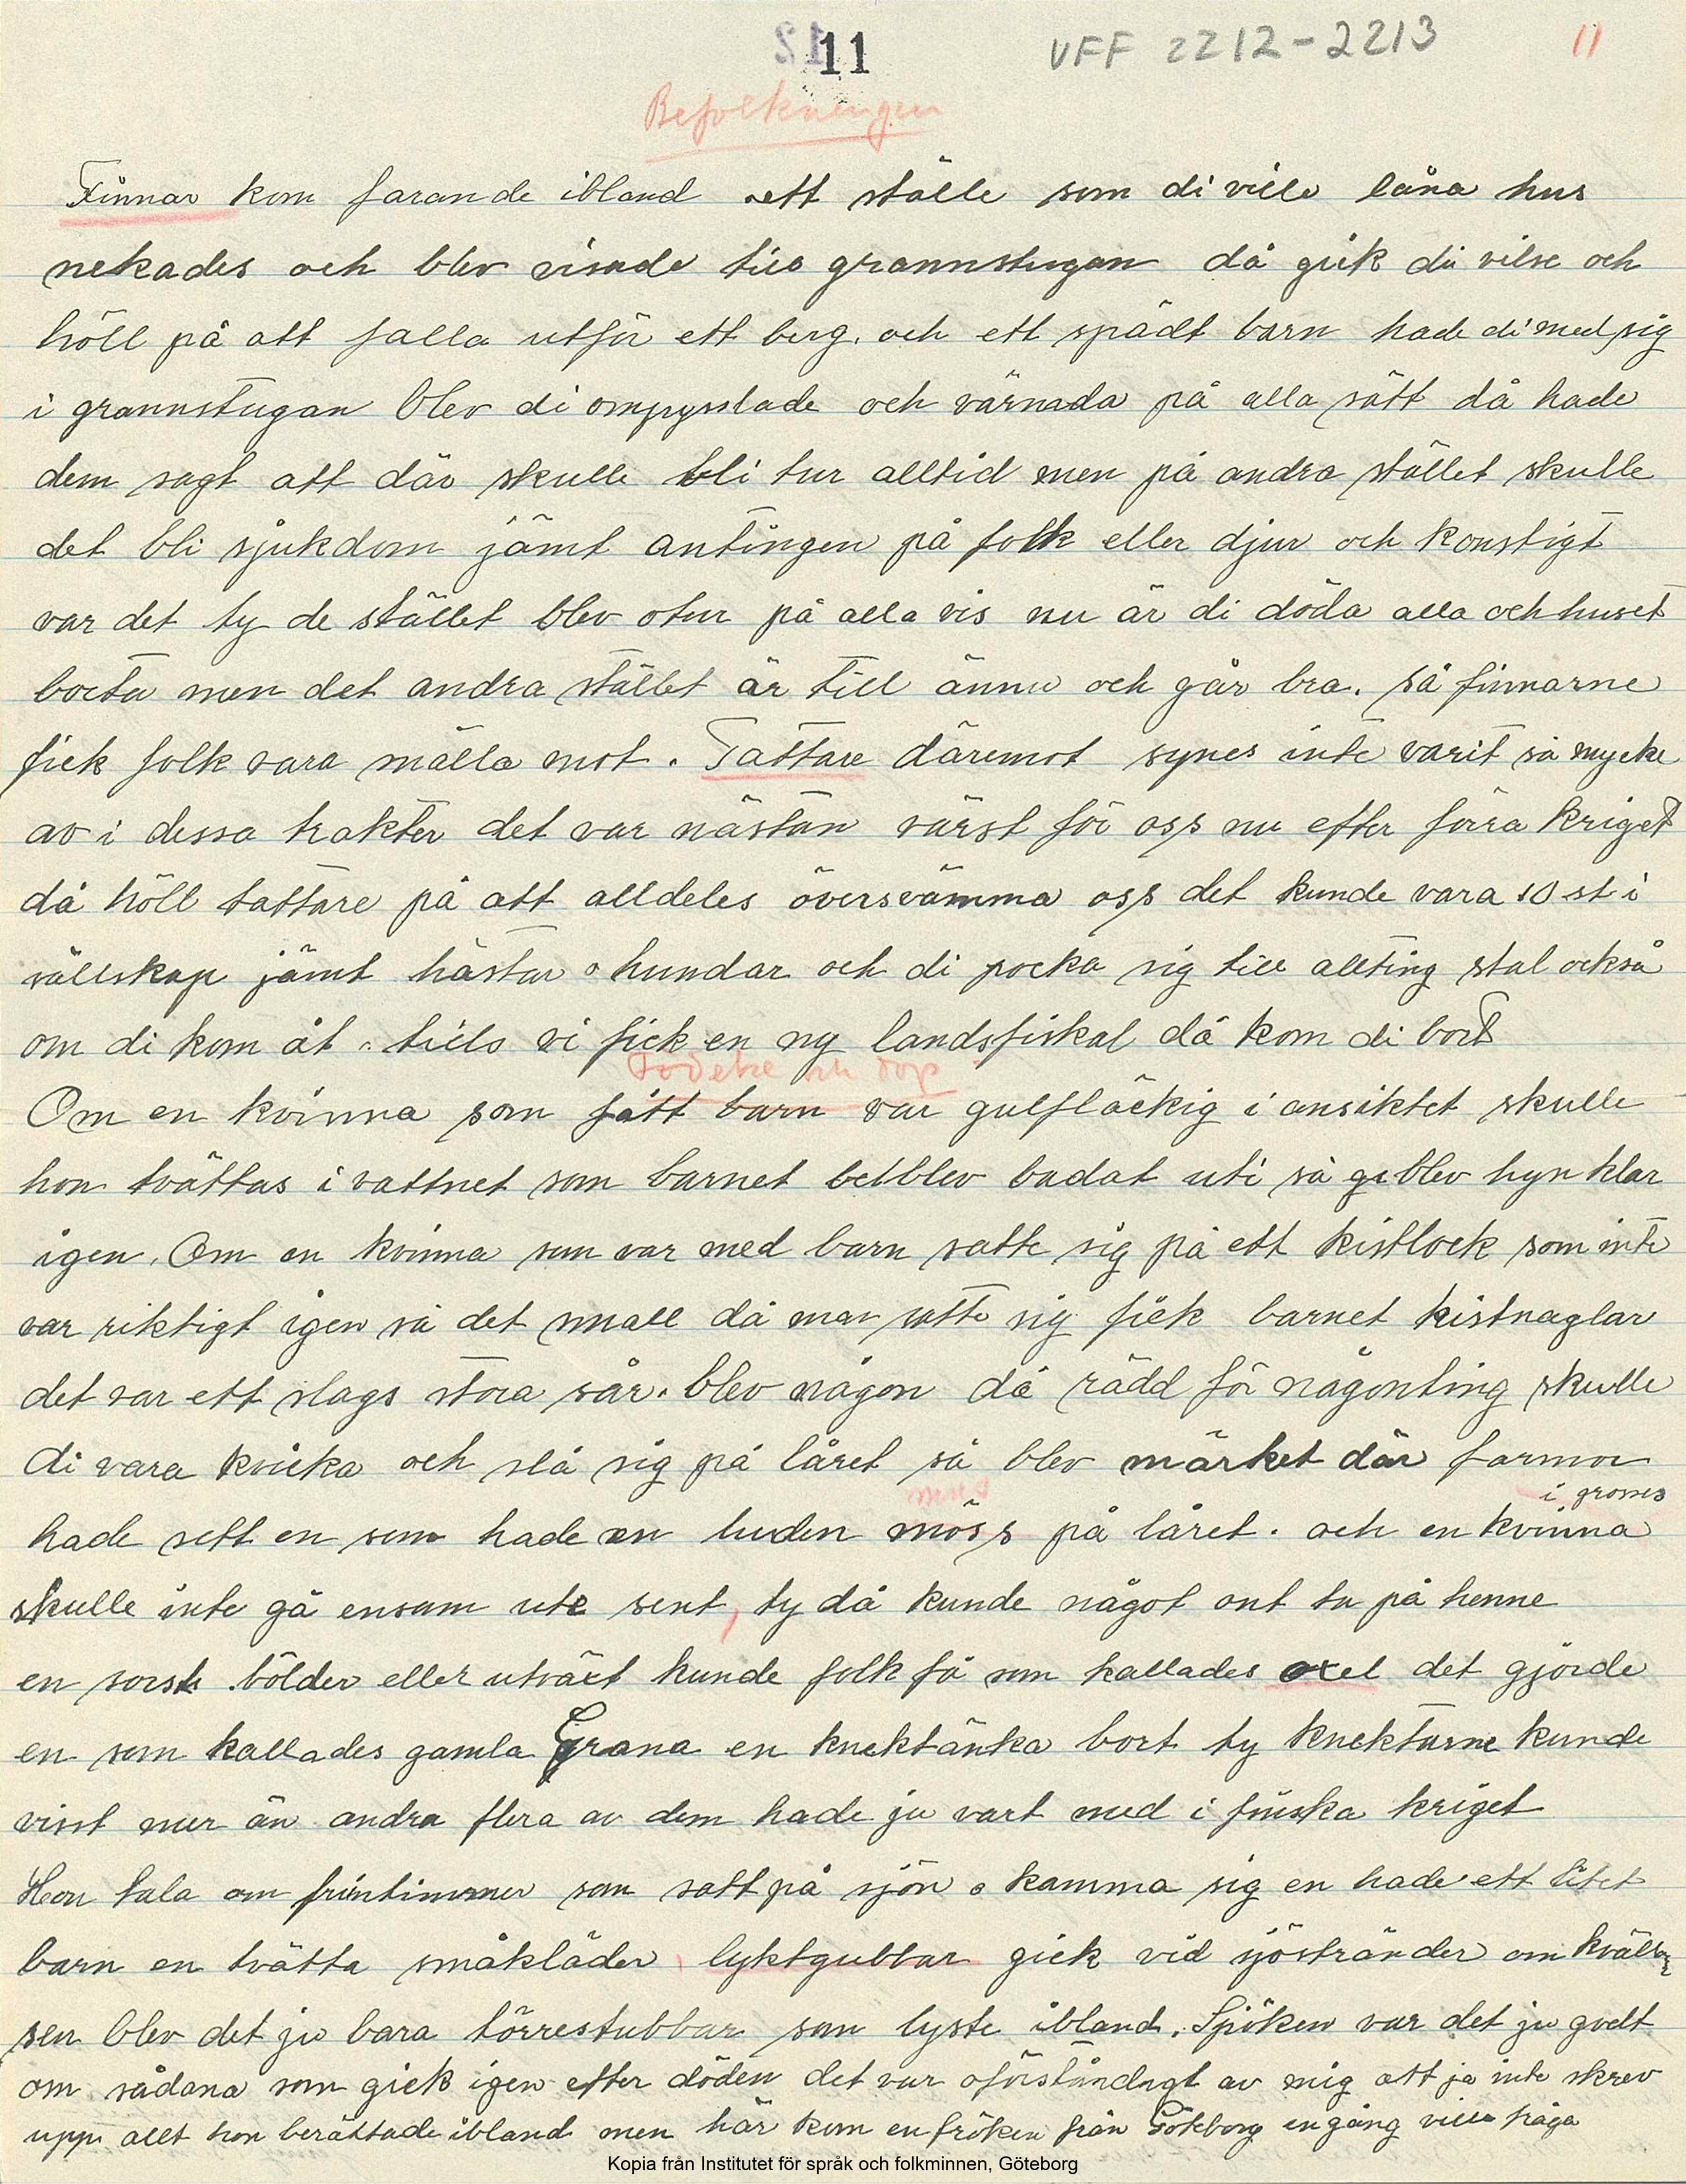 11
VFF 2212-2213
11
Befolkningen
Finnar kom farande ibland ett ställe som di ville låna hus
nekades och blev visade till grannstugan då gick di vilse och
höll på att falla utför ett berg. och ett spädt barn hade di med sig
i grannstugan blev di ompysslade och värnada på alla sätt då hade
dem sagt att där skulle bli tur alltid men på andra stället skulle
det bli sjukdom jämt antingen på folk eller djur och konstigt
var det ty de stället blev otur på alla vis nu är di döda alla och huset
borta men det andra stället är till ännu och går bra. så finnarne
fick folk vara mälla mot. Tattare däremot synes inte varit så mycke
av i dessa trakter det var nästan värst för oss nu efter förra kriget
då höll tattare på att alldeles översvämma oss det kunde vara 10 st i
sällskap jämt hästar o hundar och di pocka sig till allting stal också
om di kom åt. tills vi fick en ny landsfiskal då kom di bort
Födelse och dop
Om en kvinna som fått barn var gulfläckig i ansiktet skulle
hon tvättas i vattnet som barnet blev badat uti så blev hyn klar
igen. Om en kvinna som var med barn satte sig på ett kistlock som inte
var riktigt igen så det small då man satte sig fick barnet kistnaglar
det var ett slags stora sår. blev någon då rädd för någonting skulle
di vara kvicka och slå sig på låret så blev märket där farmor
mus
i grosses
hade sett en som hade en luden möss på låret. och en kvinna
skulle inte gå ensam ute sent, ty då kunde något ont ta på henne
en sorsts bölder eller utväxt kunde folk få som kallades oxel det gjörde
en som kallades gamla Grana en knektänka bort ty knektarne kunde
visst mer än andra flera av dem hade ju vart med i finska kriget
Hon tala om fruntimmer som satt på sjön o kamma sig en hade ett litet
barn en tvätta småkläder lyktgubbar gick vid sjöstränder om kvällar
sen blev det ju bara törrestubbar som lyste ibland. Spöken var det ju gvett
om sådana som gick igen efter döden det var oförståndigt av mig att ja inte skrev
upp allt hon berättade ibland men här kom en fröken från Göteborg en gång ville fråga
Kopia från Institutet för språk och folkminnen, Göteborg